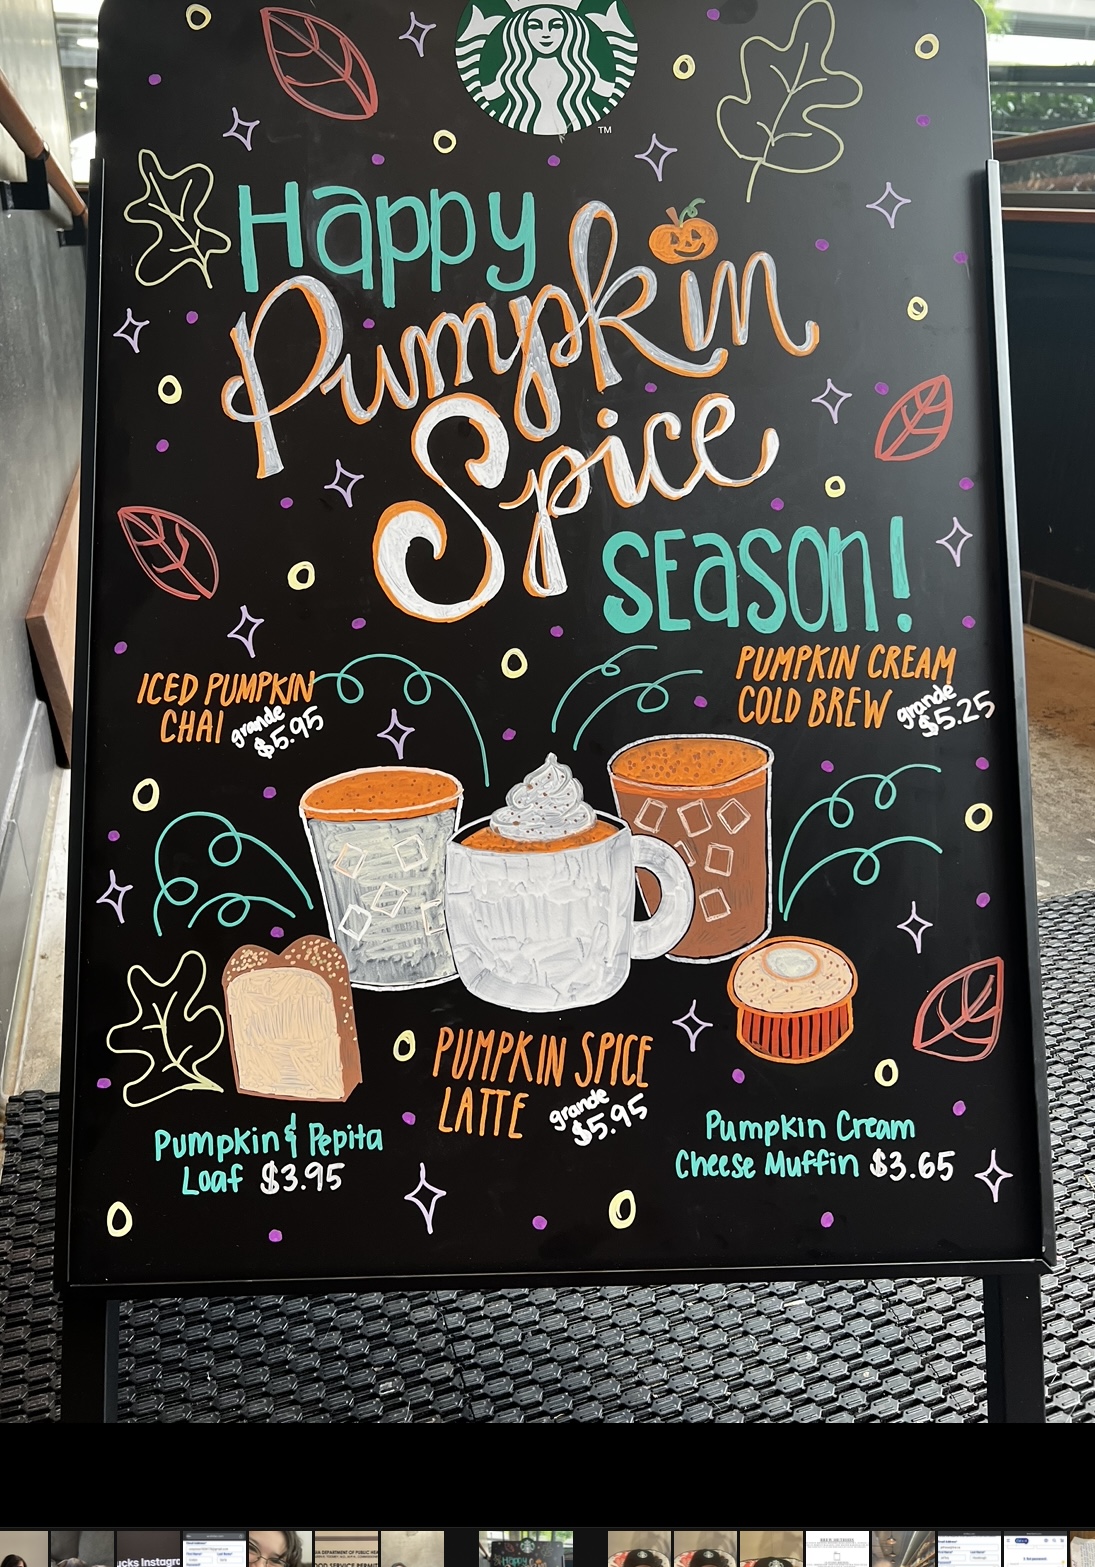 TM
Happy
Pumpkin
Spice
SEASON!
ICED PUMPKIN
CHAI grande
$5.95
PUMPKIN CREAM
COLD BREW grande
$5.25
PUMPKIN SPICE
LATTE grande
$5.95
Pumpkin & Pepita
Loaf $3.95
Pumpkin Cream
Cheese Muffin $3.65
ucks Instagra